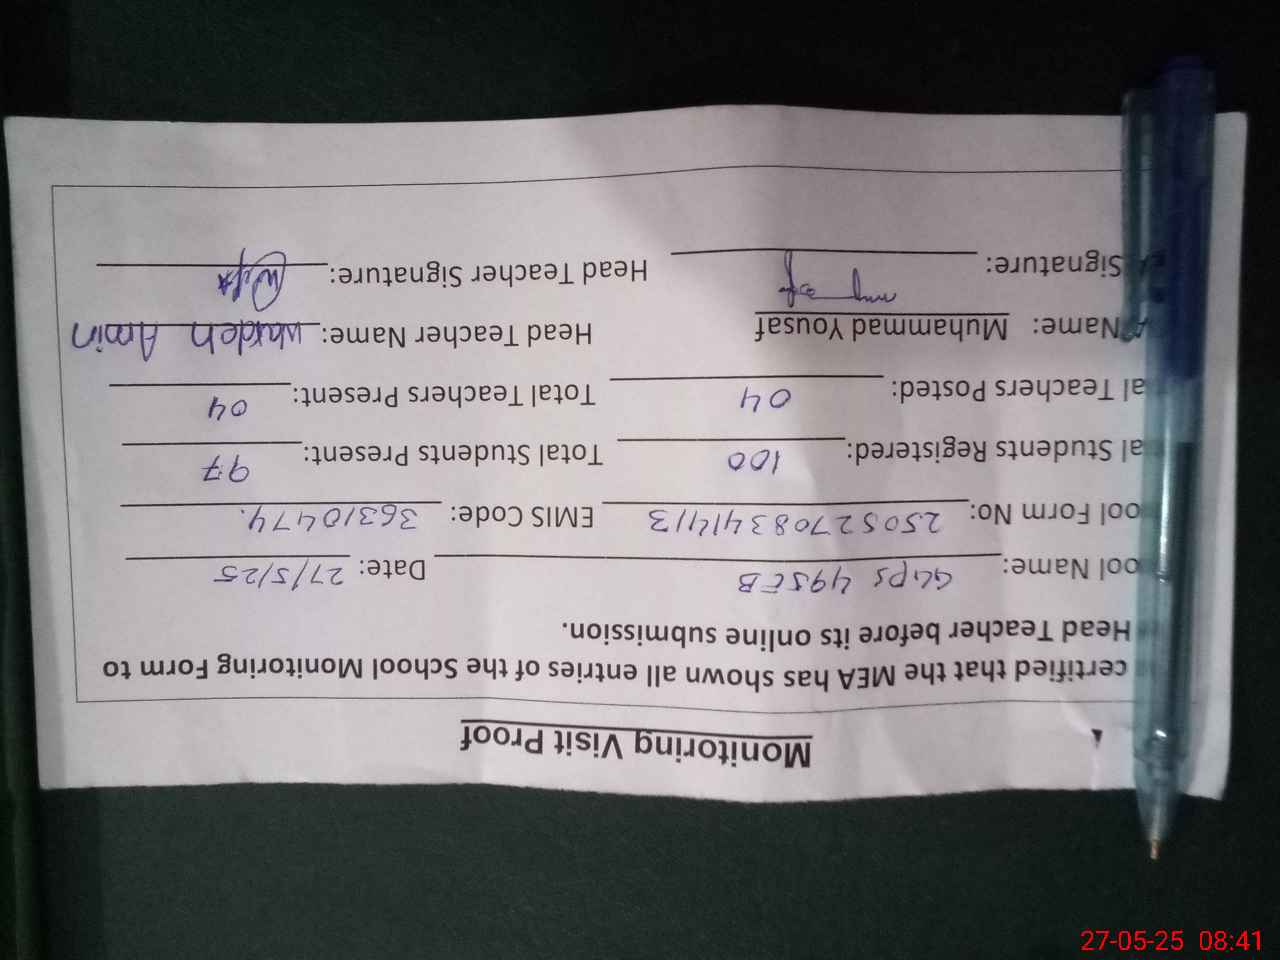 Monitoring Visit Proof
certified that the MEA has shown all entries of the School Monitoring Form to
Head Teacher before its online submission.
ool Name: GGPS 495EB Date: 27/5/25
ool Form No: EMIS Code: 36310474.
al Students Registered: 100 Total Students Present: 97
al Teachers Posted: 04 Total Teachers Present: 04
Name: Muhammad Yousaf Head Teacher Name: Amin
Signature: Head Teacher Signature:
27-05-25 08:41